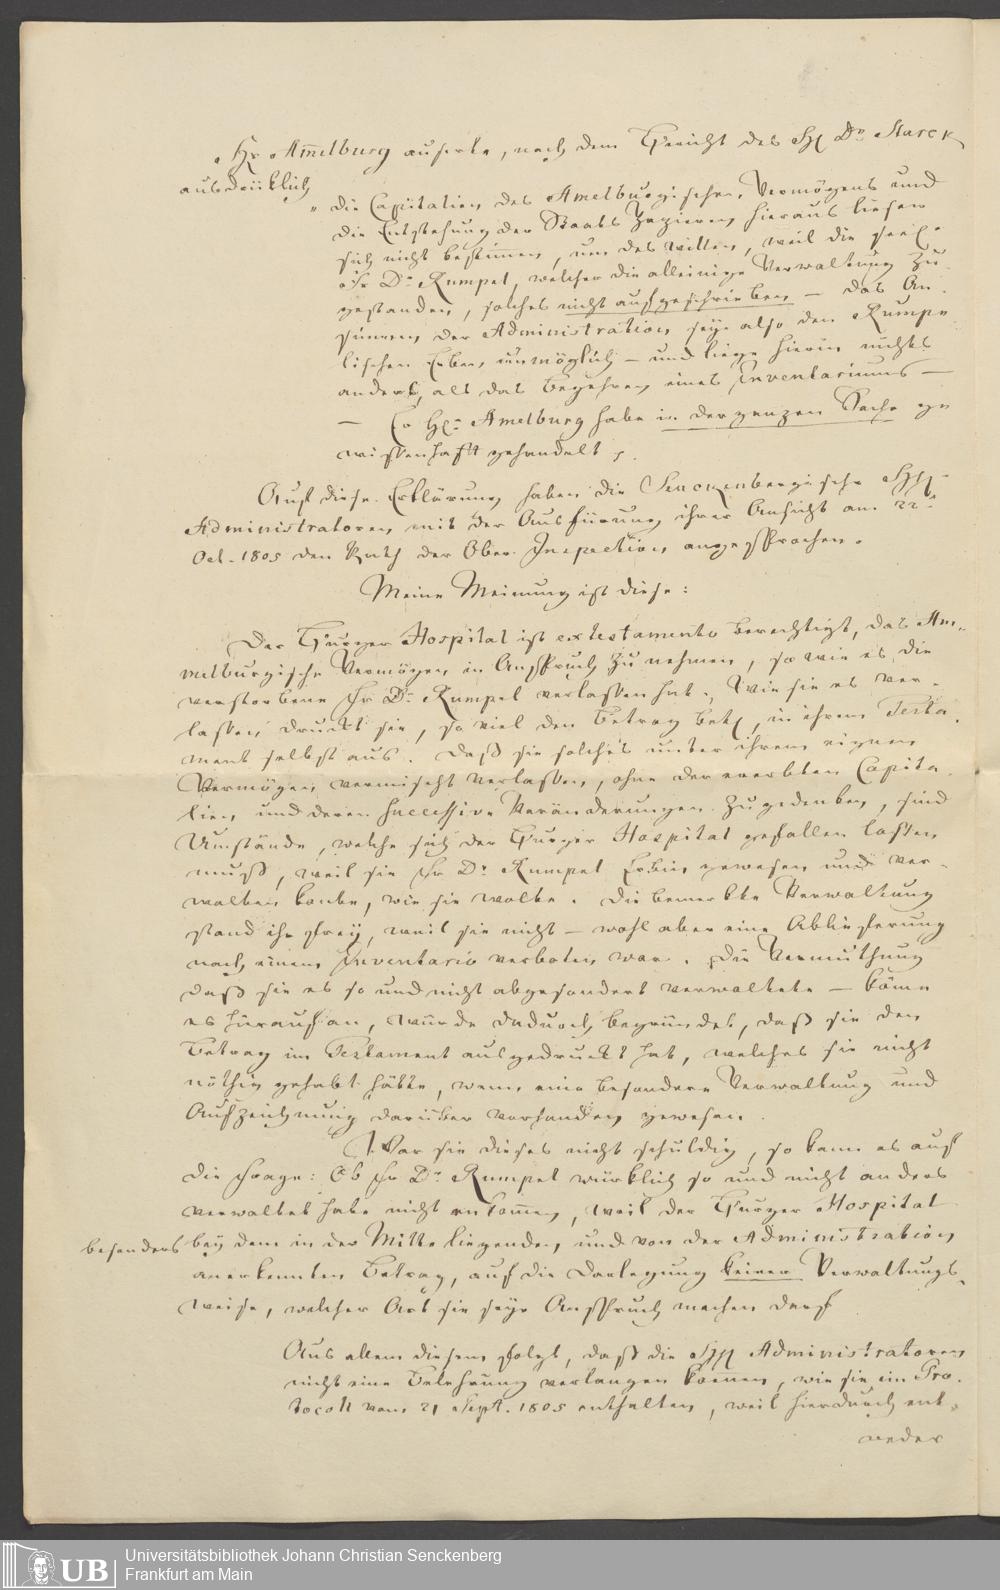 Hr. Am̅elburg äuserte, nach dem Bericht des HE Dr. Starck
ausdrücklich
" die Capitalien des Amelburgischen Vermögens und
die Entstehung der Staats Papieren hieraus liesen
sich nicht bestim̅en, um des willen, weil die seel.
Fr Dr. Rumpel, welcher die alleinige Verwaltung zu-
gestanden, solches nicht aufgeschrieben — das An-
sinnen der Administration seye also den Rumpe-
lischen Erben unmöglich — und liege hierin nichts
anders, als das Begehren eines Inventariums —
— Er HE. Amelburg habe in der ganzen Sache ge-
wissenhaft gehandelt.
Auf diese Erklärung haben die Senckenbergische HHE
Administratoren mit der Ausführung ihrer Ansicht am 22ten
Oct. 1805 den Rath der Ober Inspection angesprochen.
Meine Meinung ist diese:
Der Burger Hospital ist ex testamento berechtigt, das Am-
melburgische Vermögen in Anspruch zu nehmen, so wie es die
verstorbene Fr Dr. Rumpel verlassen hat. Wie sie es ver-
lassen, druckt sie, so viel den Betrag betr., in ihrem Testa-
ment selbst aus. Daß sie solches unter ihrem eignen
Vermögen vermischt verlassen, ohne der ererbten Capita-
lien und deren successive Veränderungen zu gedenken, sind
Umstände, welche sich der Burger Hospital gefallen lassen
muß, weil sie Fr Dr. Rumpel Erbin gewesen und ver-
walten konte, wie sie wolte. Die bemerkte Verwaltung
stand ihr frey, weil sie nicht — wohl aber eine Ablieferung
nach einem Inventario verboten war. Die Vermuthung
daß sie es so und nicht abgesondert verwaltete — käme
es hierauf an, würde dadurch begründet, daß sie den
Betrag im Testament ausgedruckt hat, welches sie nicht
nöthig gehabt hätte, wenn eine besondere Verwaltung und
Aufzeichnung darüber vorhanden gewesen.
War sie dieses nicht schuldig, so kann es auf
die Frage: Ob Fr Dr. Rumpel würklich so und nicht anders
verwaltet habe nicht ankom̅en, weil der Burger Hospital
besonders bey dem in der Mitte liegenden und von der Administration
anerkennten Betrag, auf die Darlegung keiner Verwaltungs-
weise, welcher Art sie seye Anspruch machen darf
Aus allem diesem folgt, daß die HHE Administratoren
nicht eine Belehrung verlangen können, wie sie im Pro-
tocoll vom 21 Sept. 1805 enthalten, weil hierdurch ent-
weder
UB
Universitätsbibliothek Johann Christian Senckenberg
Frankfurt am Main